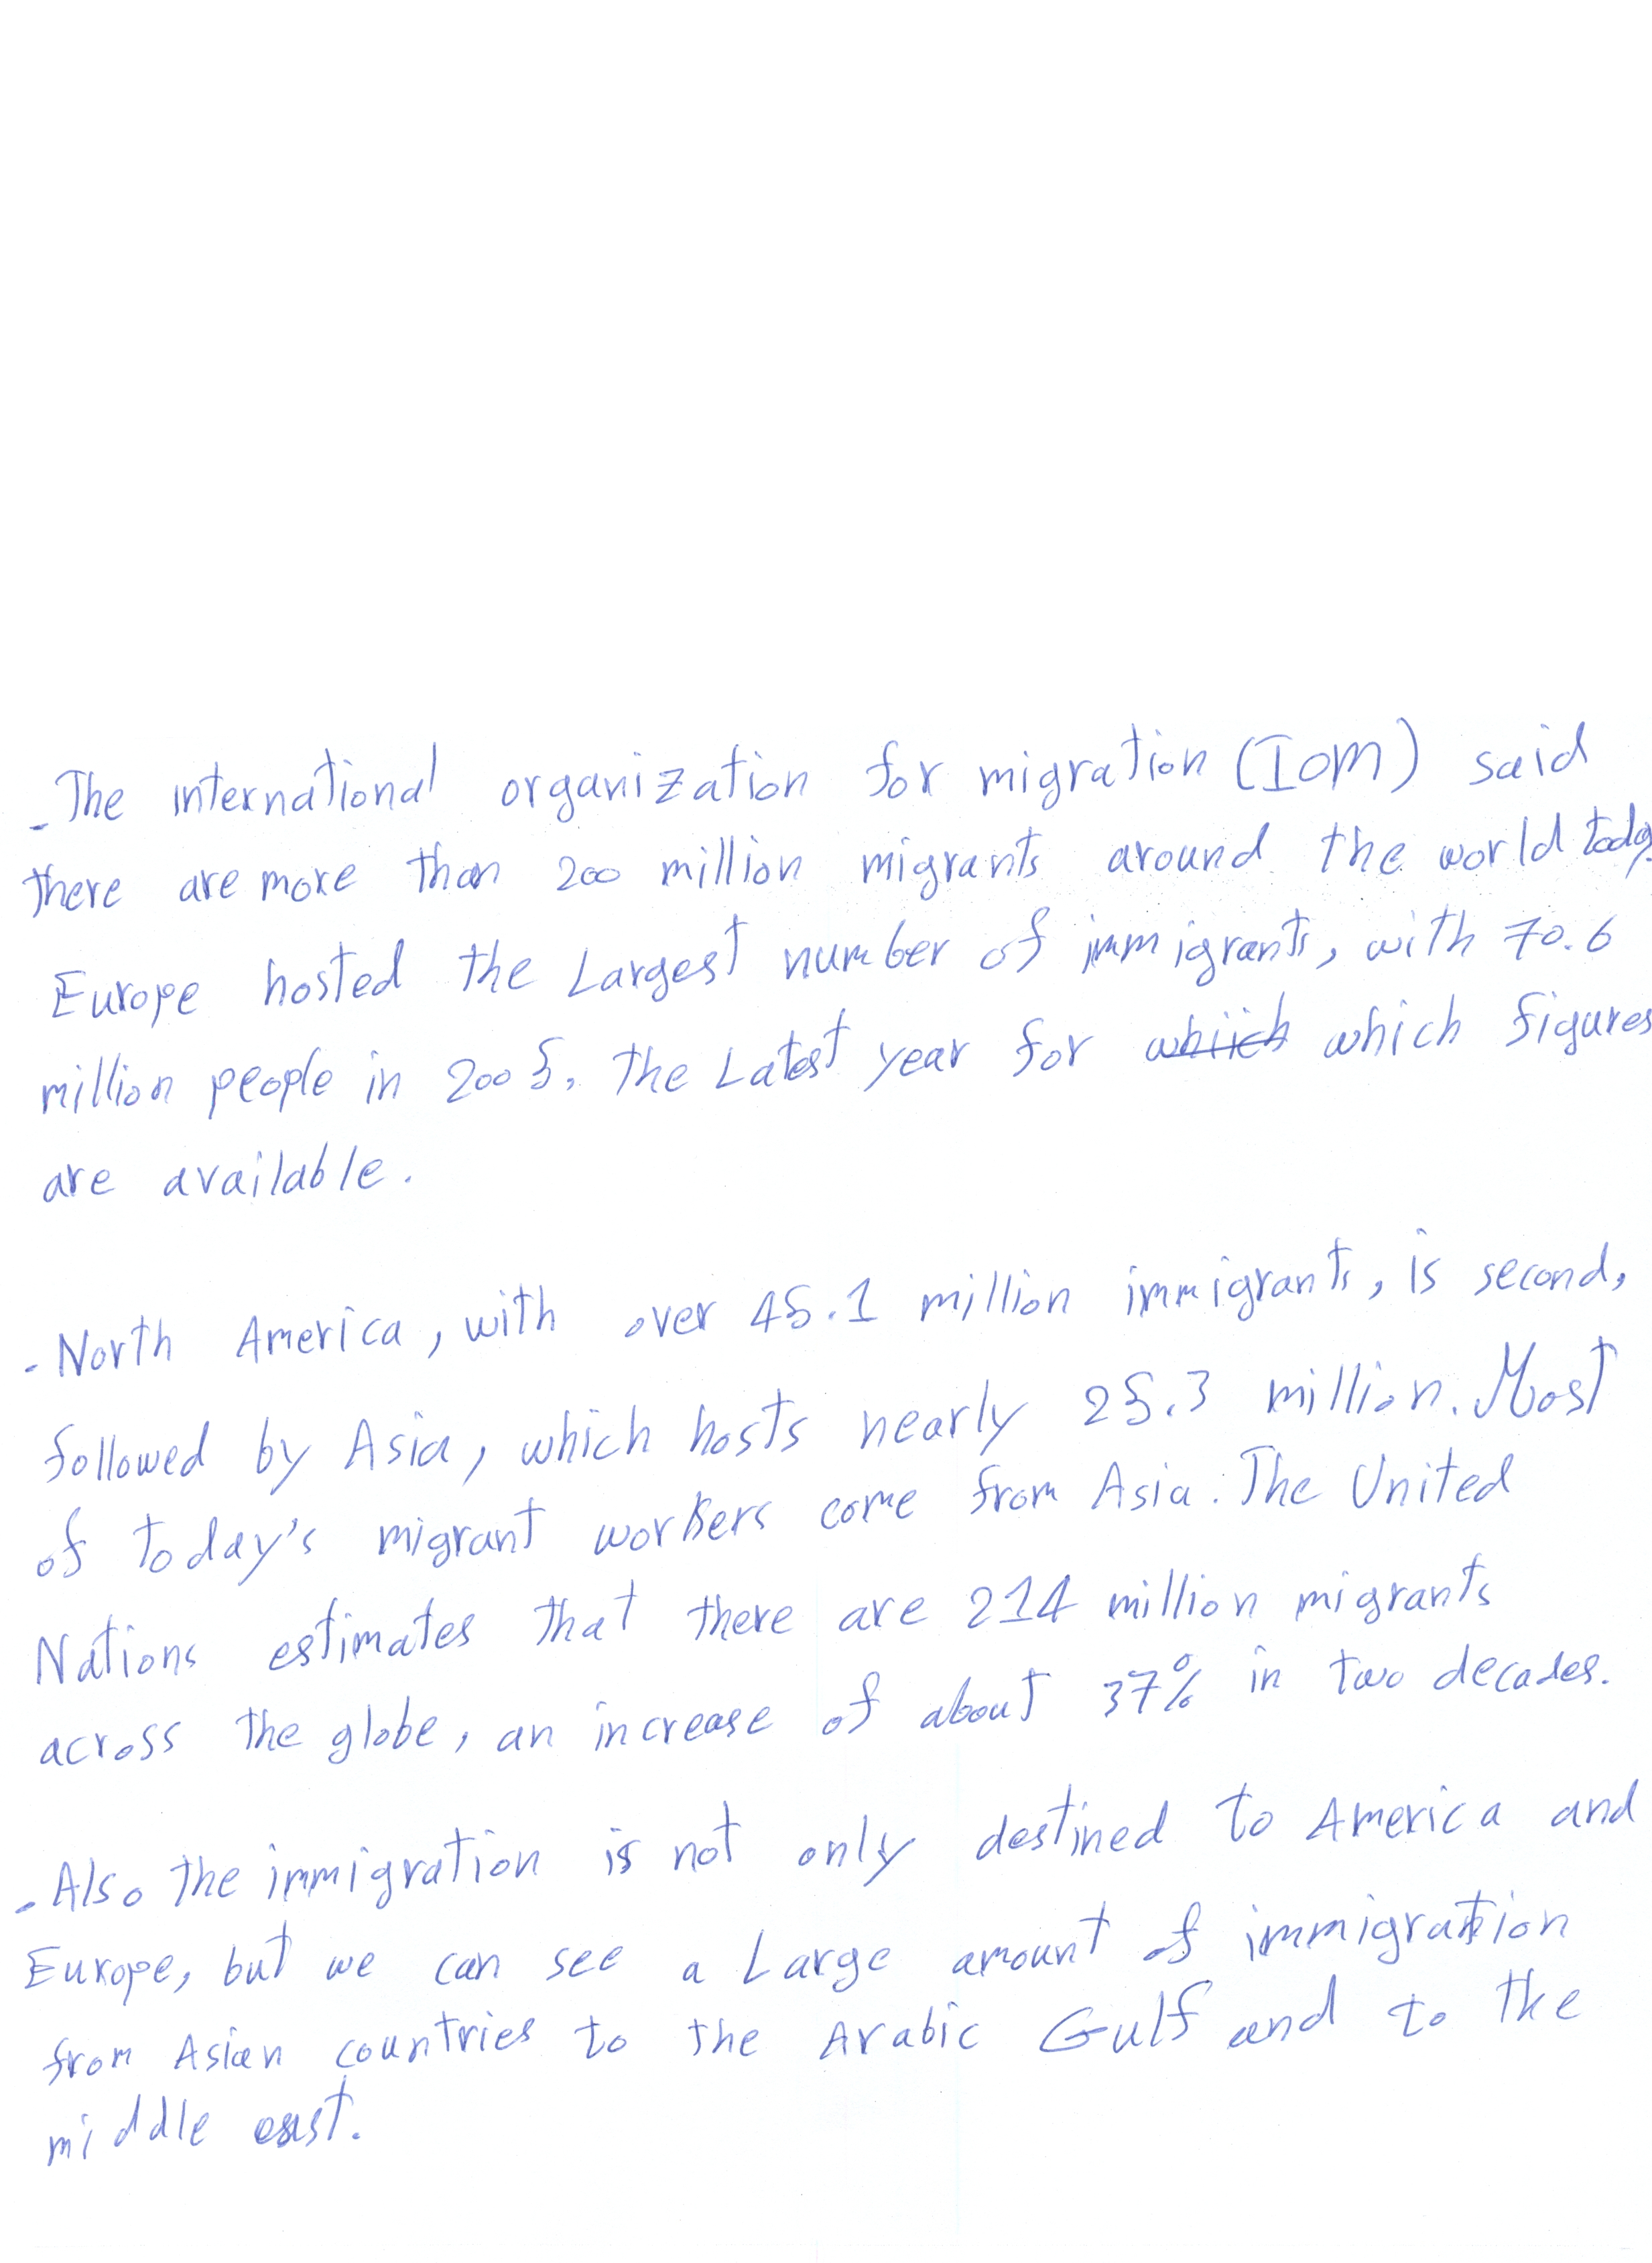 - The international organization for migration (IOM) said
there are more than 200 million migrants around the world today.
Europe hosted the Largest number of immigrants, with 70.6
million people in 2005, the Latest year for whiich which figures
are available.
- North America, with over 45.1 million immigrants, is second,
followed by Asia, which hosts nearly 25.3 million. Most
of today's migrant workers come from Asia. The United
Nations estimates that there are 214 million migrants
across the globe, an increase of about 37% in two decades.
- Also the immigration is not only destined to America and
Europe, but we can see a Large amount of immigration
from Asian countries to the Arabic Gulf and to the
middle east.